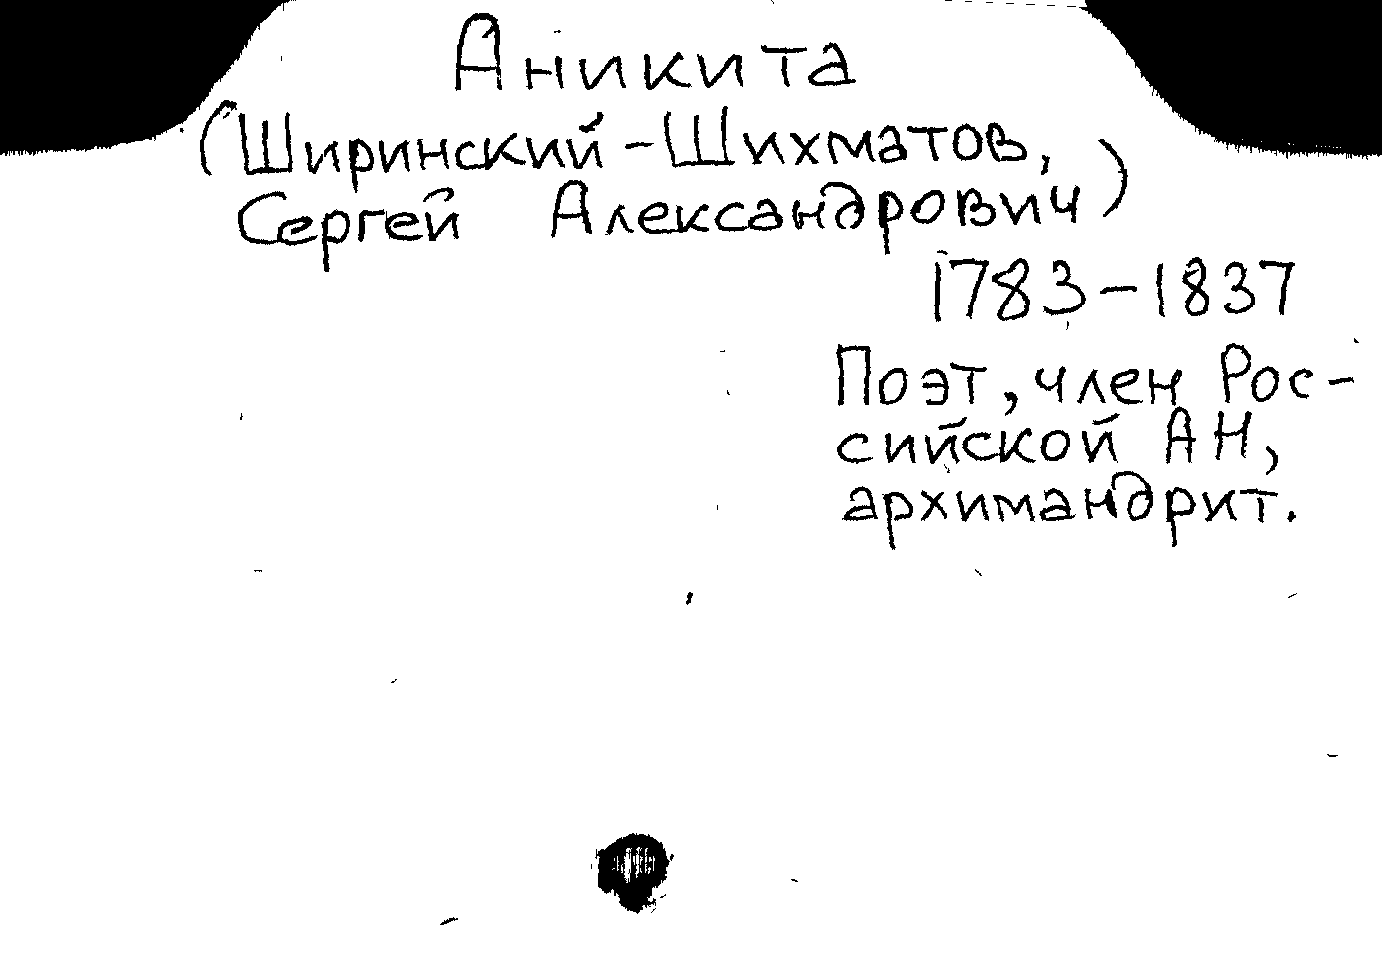 Аникита
(Ширинский-Шихматов,
Сергей Александрович)
1783-1837
Поэт, член Рос-
сийской АН,
архимандрит.